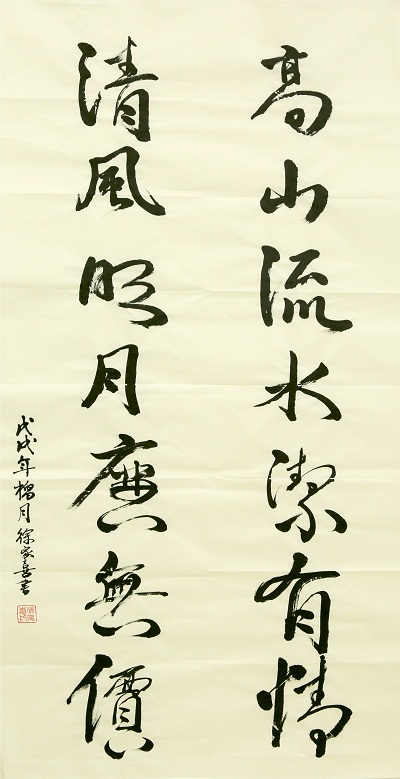 高山流水潔有情
清風明月應無價
戊戌年榴月徐家喜書